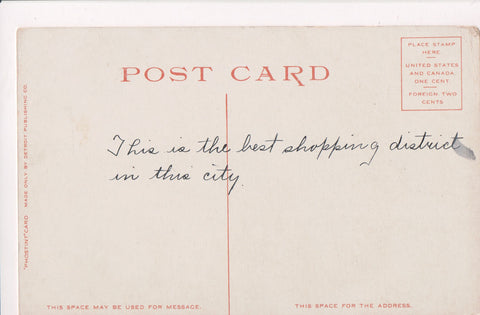 POST CARD
PLACE STAMP
HERE.
UNITED STATES
AND CANADA
ONE CENT
FOREIGN TWO
CENTS
This is the best shopping district
in this city.
"PHOSTINT" CARD MADE ONLY BY DETROIT PUBLISHING CO.
THIS SPACE MAY BE USED FOR MESSAGE.
THIS SPACE FOR THE ADDRESS.